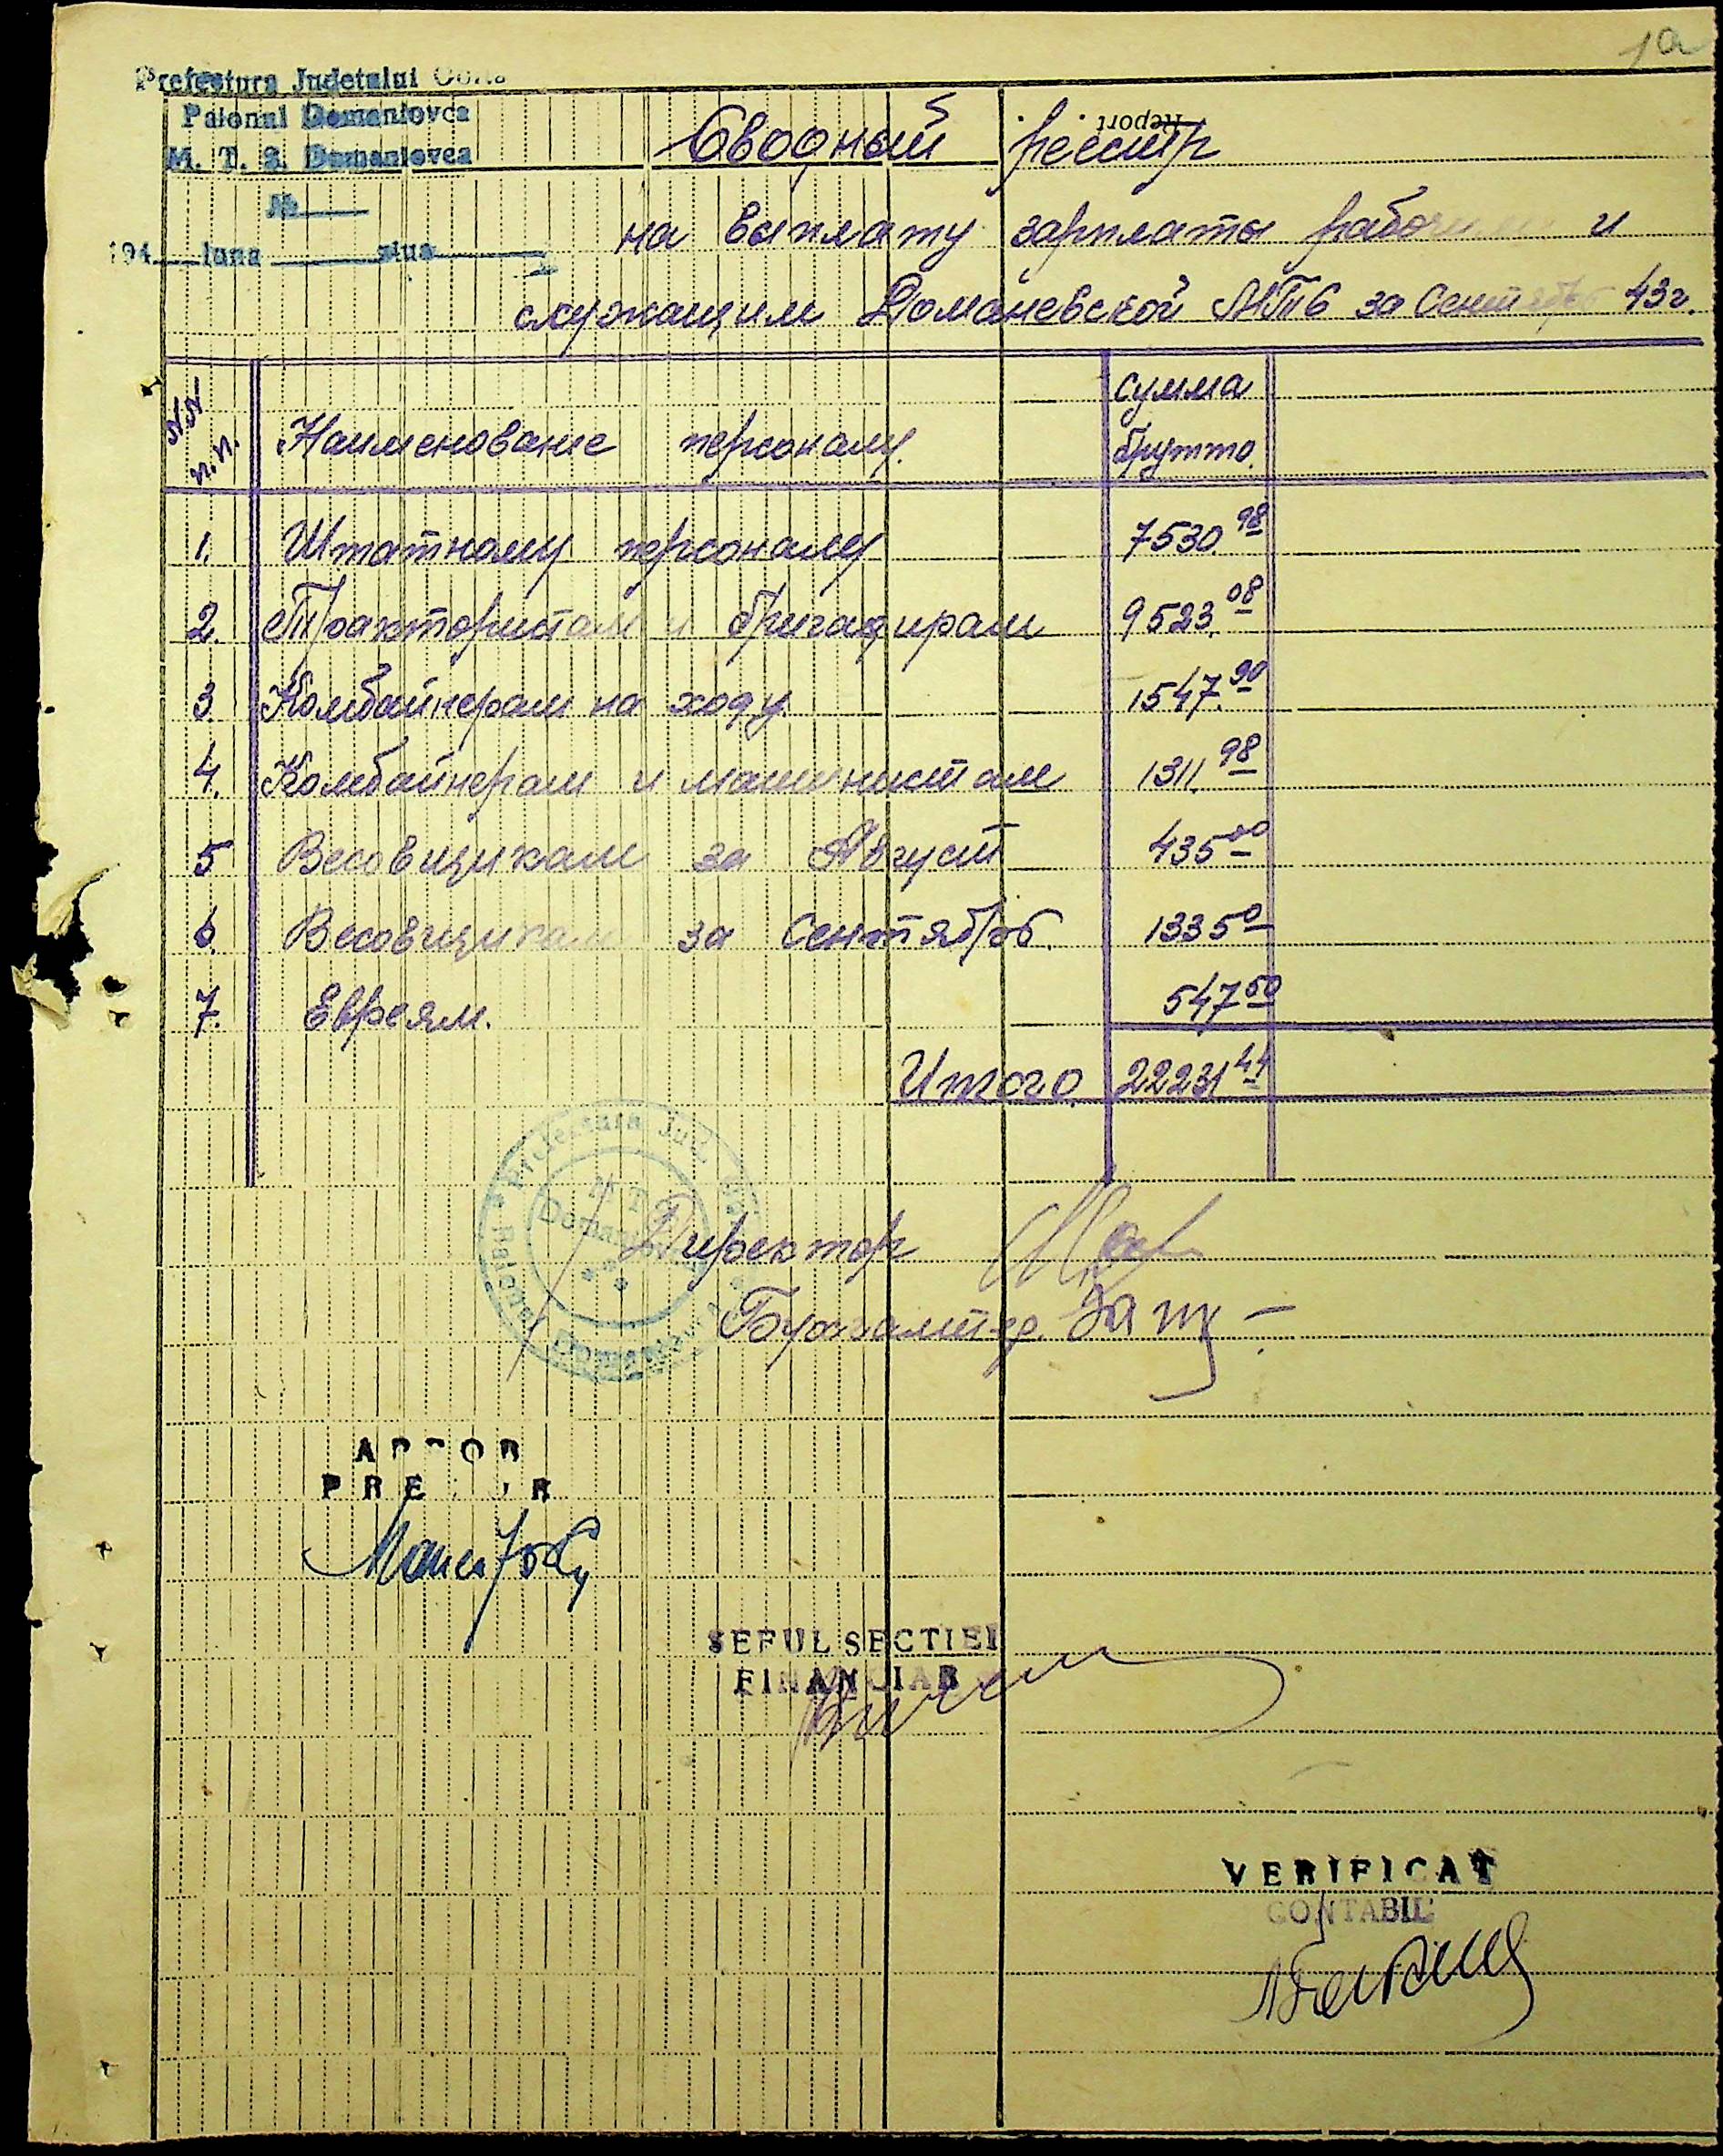 1a
Prefectura Județului
Raionul Domaniovca
M. T. S. Domaniovca
№
194 luna ziua
Report
Сводный реестр
на выплату зарплаты рабочим и
служащим Доманевской МТС за Сентябрь 43г.
N.N п.п. Наименование персоналу. сумма брутто.
1. Штатному персоналу 7530.98
2. Трактористам и бригадирам 9523.08
3. Комбайнерам на ходу. 1547.90
4. Комбайнерам и машинистам 1311.98
5 Весовщикам за Август 435 00
6. Весовщикам за Сентябрь. 1335 0
7. Евреям. 547 50
Итого. 22231 44
Prefectura Jud.
M T S
Domaniovca
Raionul Domaniovca
Директор
Бухгалтер.
APROB
PRETOR
SEFUL SECTIEI
FINANCIAR
VERIFICAT
CONTABIL